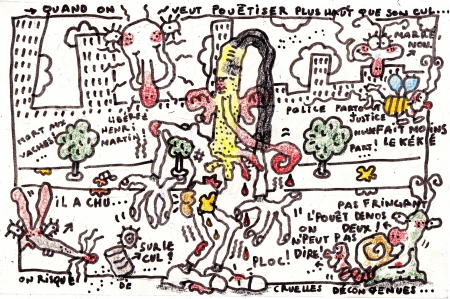 → QUAND ON
VEUT POUËTISER PLUS HAUT QUE SON CUL...
MARRE,
NON.
MORT AUX
VACHES
LIBÉREZ
HENRI
MARTIN
POLICE PARTOUT
JUSTICE
NULLE
PART!
FAIT MOINS
LE KÉKÉ
IL A CHU...
SUR LE
CUL?
PLOC!
PAS FRINGANT
L'POUËT DE NOS
DEUX!
ON
N'PEUT PAS
DIRE!
ON RISQUE
DE
CRUELLES DÉCONVENUES...